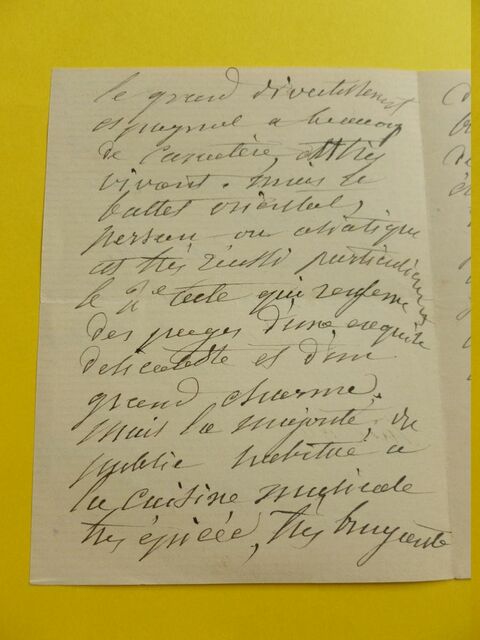 le grand divertissement
espagnol a beaucoup
de caractère, est très
vivant. mais le
ballet oriental,
persan ou asiatique
est très réussi particulièrement
le 2e acte qui renferme
des pages d'une exquise
délicatesse et d'un
grand charme.
mais la majorité, du
public habitué à
la cuisine musicale
très épicée, très bruyante